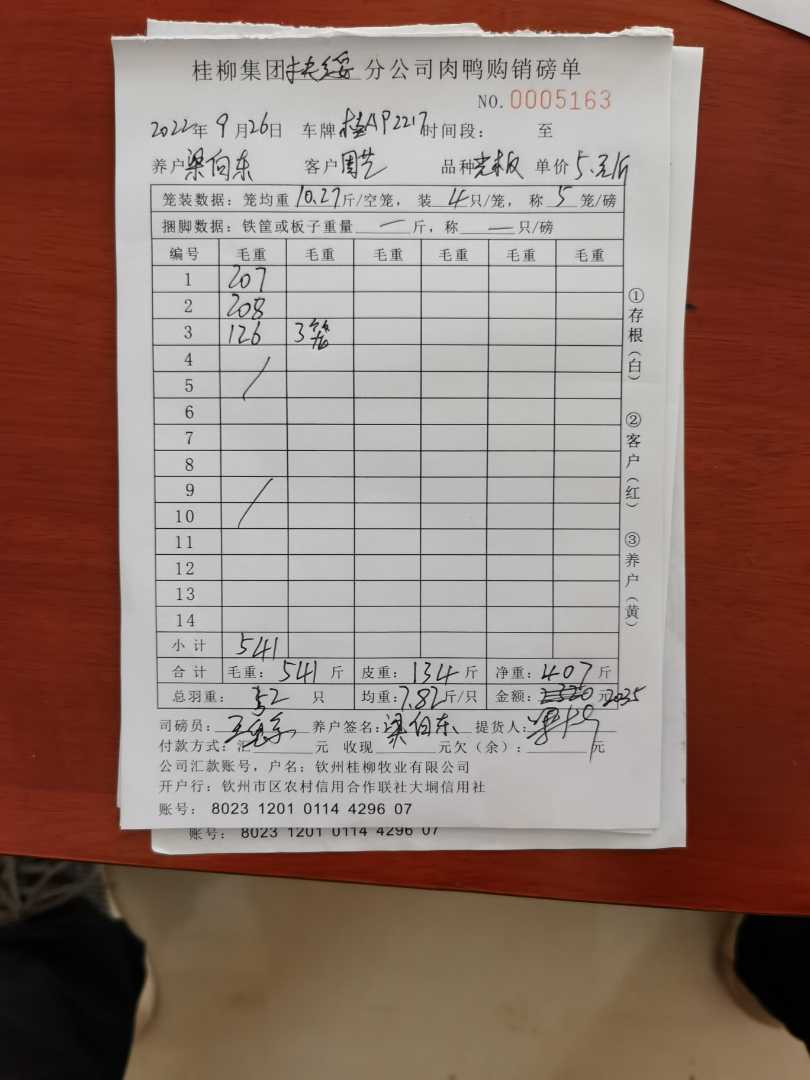 桂柳集团扶绥分公司肉鸭购销磅单
NO.0005163
2022年9月26日 车牌桂AP2217时间段: 至
养户梁向东 客户周艺 品种光板 单价5.元/斤
笼装数据:笼均重10.27斤/空笼,装4只/笼,称5笼/磅
捆脚数据:铁筐或板子重量一斤,称一只/磅
编号 毛重 毛重 毛重 毛重 毛重 毛重
1 207
2 208
3 126 3笼
4
5
6
7
8
9
10
11
12
13
14
小计 541
合计 毛重:541斤 皮重:134斤 净重:407斤
总羽重:52只 均重:7.82斤/只 金额:元2035
司磅员: 养户签名:梁向东 提货人:
付款方式:汇 元 收现 元欠(余): 元
公司汇款账号,户名:钦州桂柳牧业有限公司
开户行:钦州市区农村信用合作联社大垌信用社
账号: 8023 1201 0114 4296 07
账号: 8023 1201 0114 4296 07
①存根(白)
②客户(红)
③养户(黄)